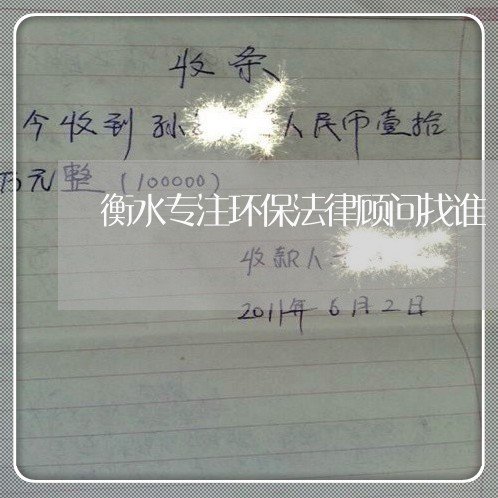 收条
今收到孙 人民币壹拾
万元整（100000）
衡水专注环保法律顾问找谁
收款人
2011年6月2日